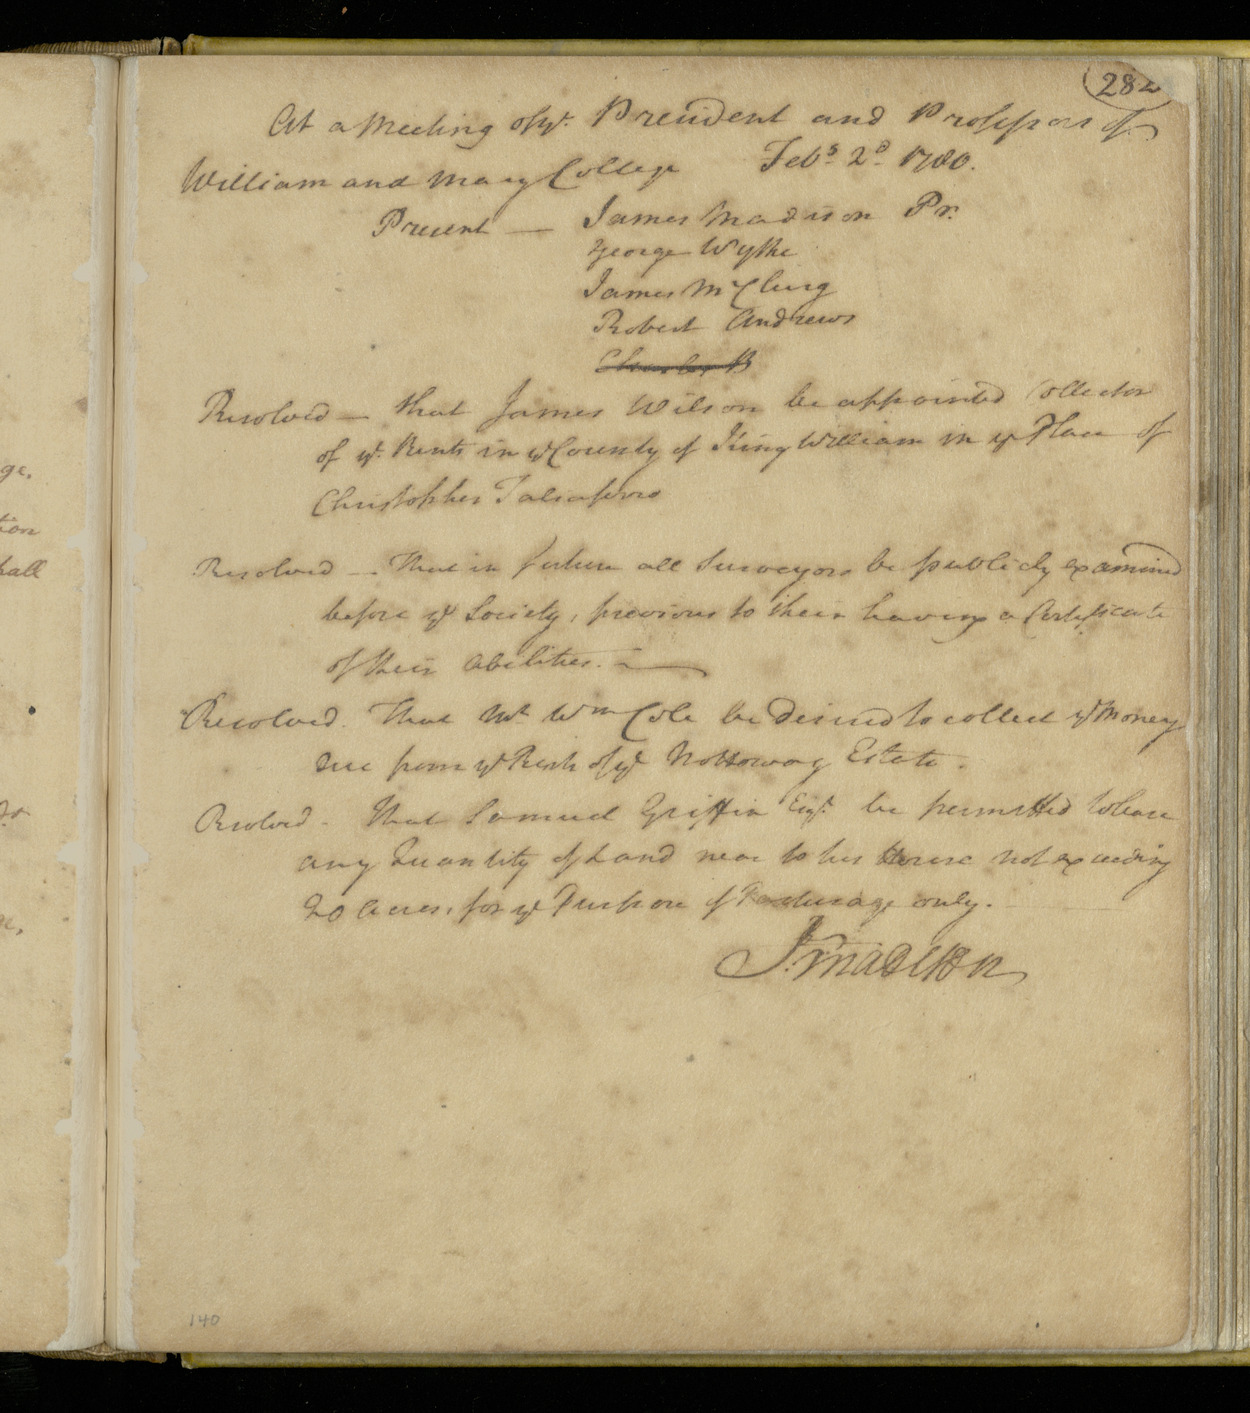 282
At a Meeting of ye. President and Professors of
William and Mary College Feby. 2d. 1780.
Present — James Madison Pr.
George Wythe
James McClurg
Robert Andrews
Charles B
Resolved — that James Wilson be appointed Collector
of ye. Rents in ye County of King William in ye Place of
Christopher Taliaferro
Resolved — That in future all Surveyors be publicly examined
before ye Society, previous to their having a Certificate
of their Abilities. —
Resolved. That Mr. Wm Cole be desired to collect ye Money
due from ye Rents of ye Nottoway Estate.
Resolved - That Samuel Griffin Esqr. be permitted to lease
any Quantity of Land near to his House not exceeding
20 Acres, for ye Purpose of Pasturage only.
J. Madison
140
ge.
tion
hall